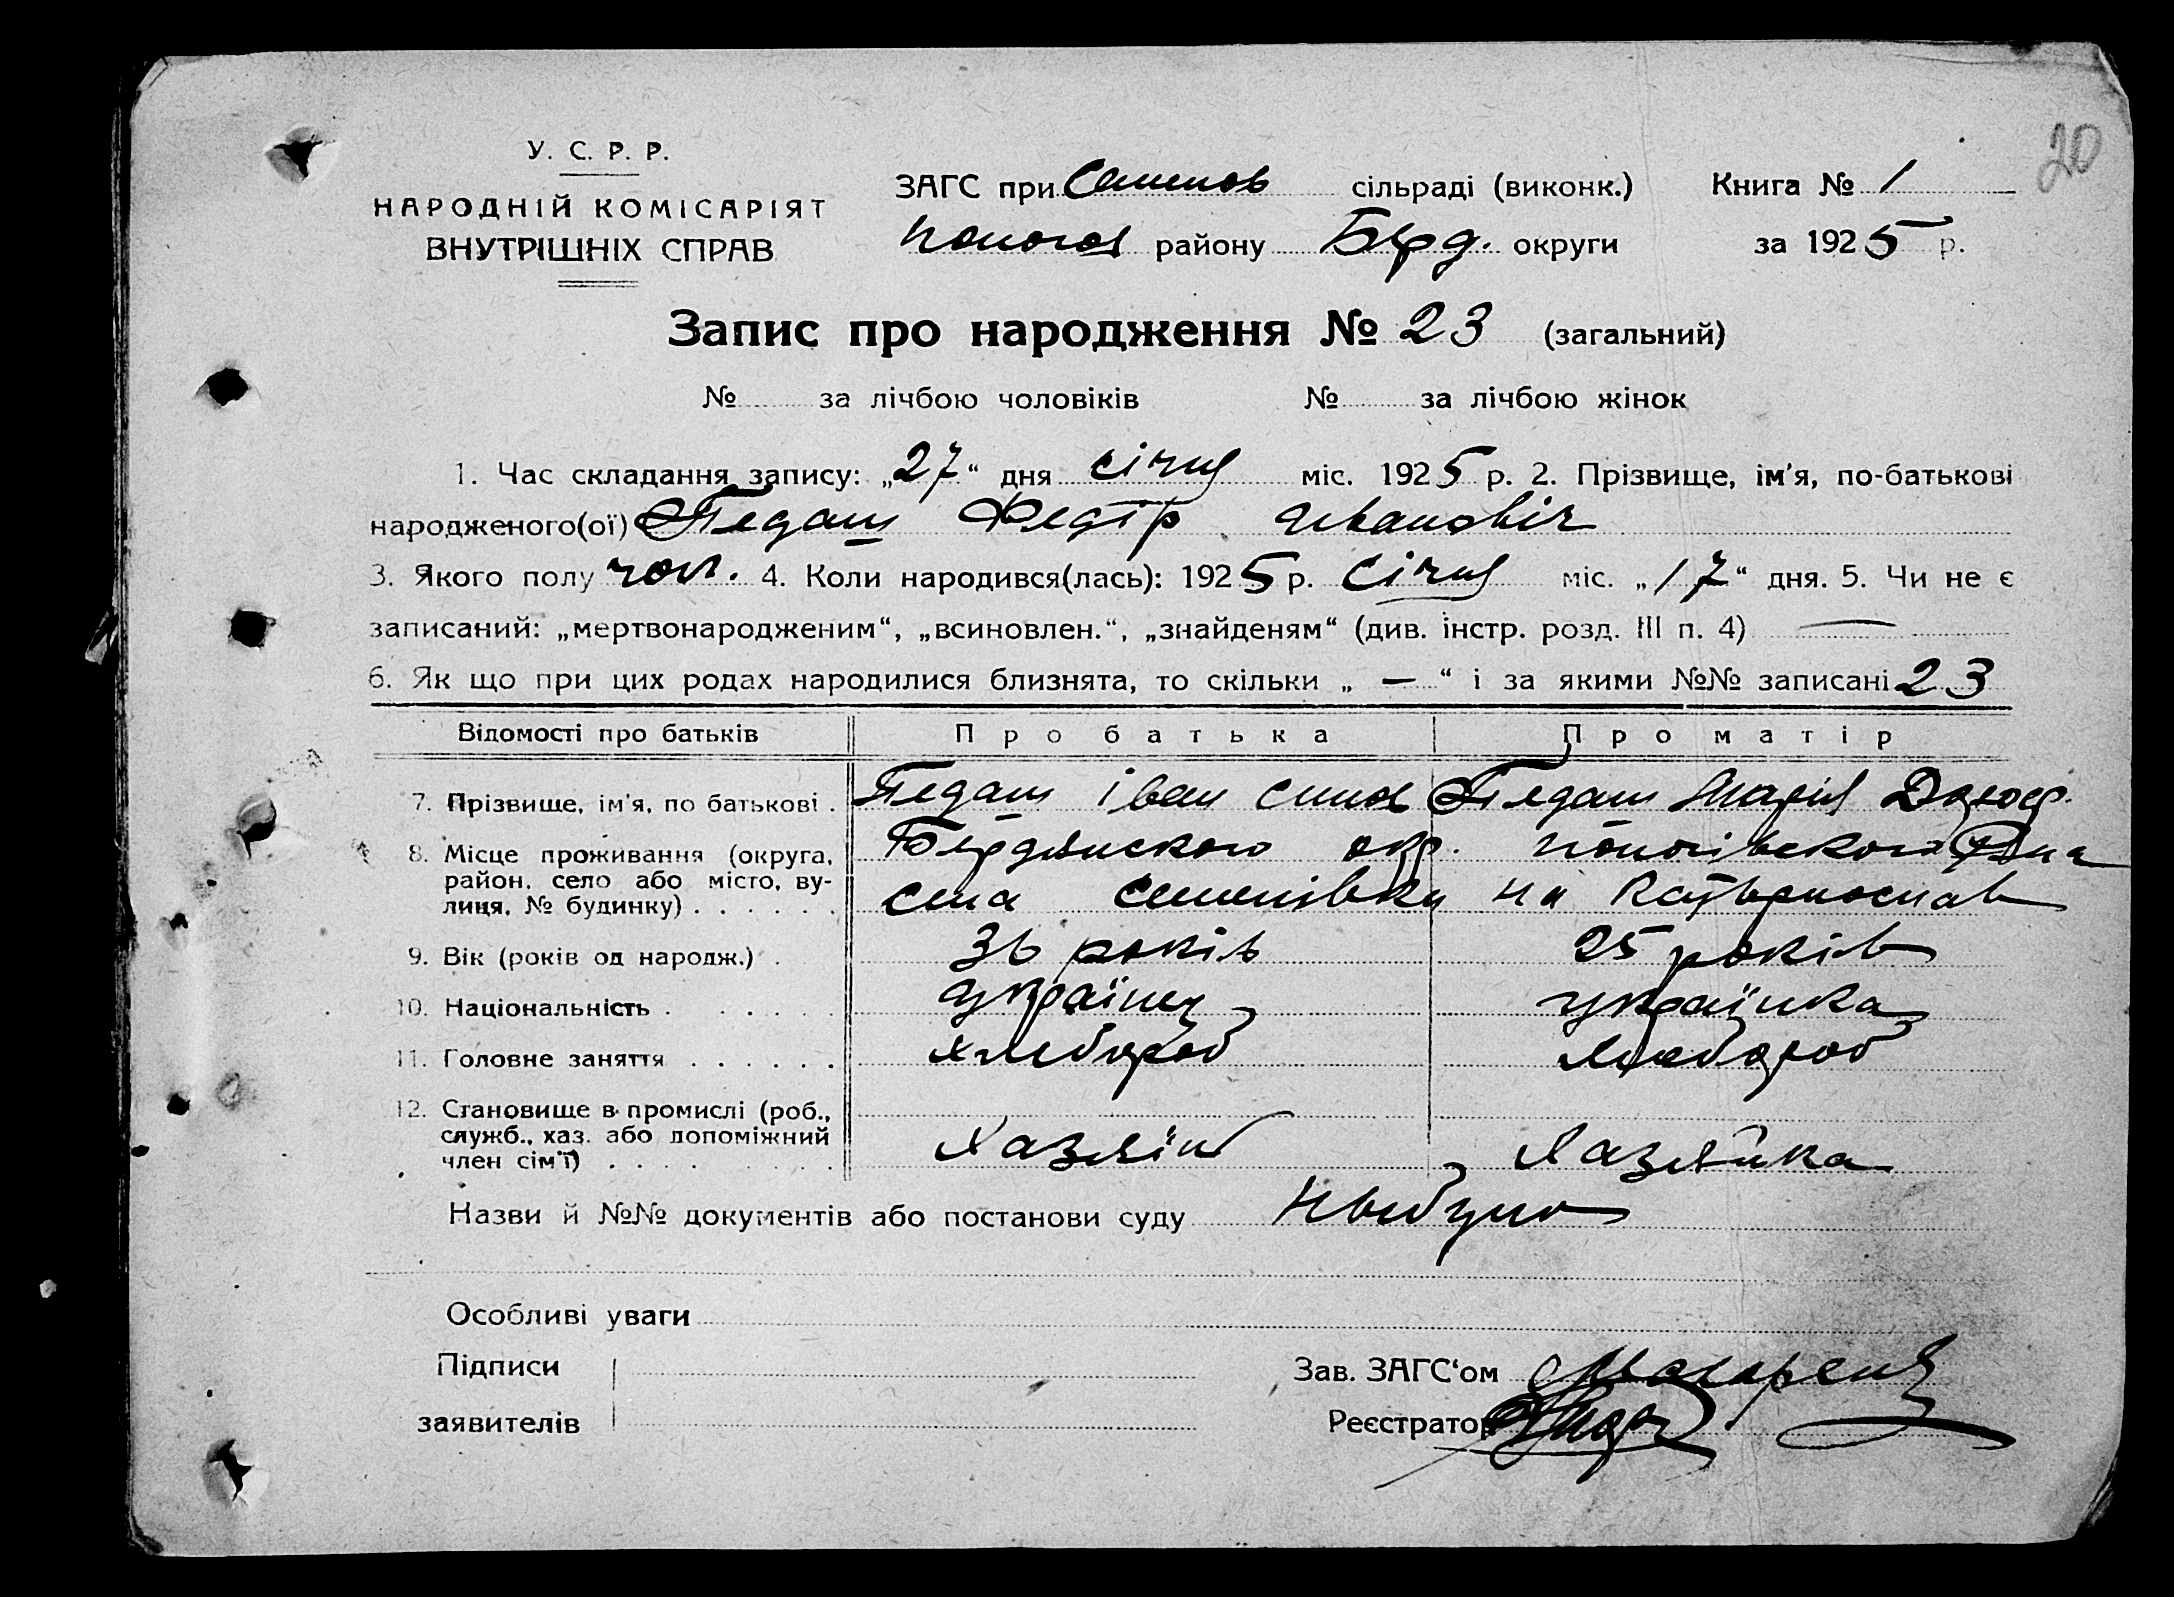 20
У. С. Р. Р.
НАРОДНІЙ КОМІСАРІЯТ
ВНУТРІШНІХ СПРАВ
ЗАГС при Семенов сільраді (виконк.) Книга № 1
району Берд. округи за 1925 р.
Запис про народження № 23 (загальний)
№ за лічбою чоловіків № за лічбою жінок
1. Час складання запису: „27“ дня січня міс. 1925 р. 2. Прізвище, ім'я, по-батькові
народженого(ої) Педаш Федір Іванович
3. Якого полу чол. 4. Коли народився(лась): 1925 р. Січня міс. „17“ дня. 5. Чи не є
записаний: „мертвонародженим“, „всиновлен.“, „знайденям“ (див. інстр. розд. III п. 4) —
6. Як що при цих родах народилися близнята, то скільки „ — “ і за якими №№ записані 23
Відомості про батьків Про батька Про матір
7. Прізвище, ім'я, по батькові . Педаш Іван Педаш Марія
8. Місце проживання (округа, Бердянского окр.
район, село або місто, ву- села Семенівки
лиця, № будинку) . . . . . .
9. Вік (років од народж.) . 36 років 25 років
10. Національність . . . . . . українец українка
11. Головне заняття . . . . . . хлебороб хлебороб
12. Становище в промислі (роб.,
служб., хаз. або допоміжний
член сім'ї) . . . . . . . . Хазяїн Хазяйка
Назви й №№ документів або постанови суду
Особливі уваги
Підписи Зав. ЗАГС‘ом
заявителів Реєстратор